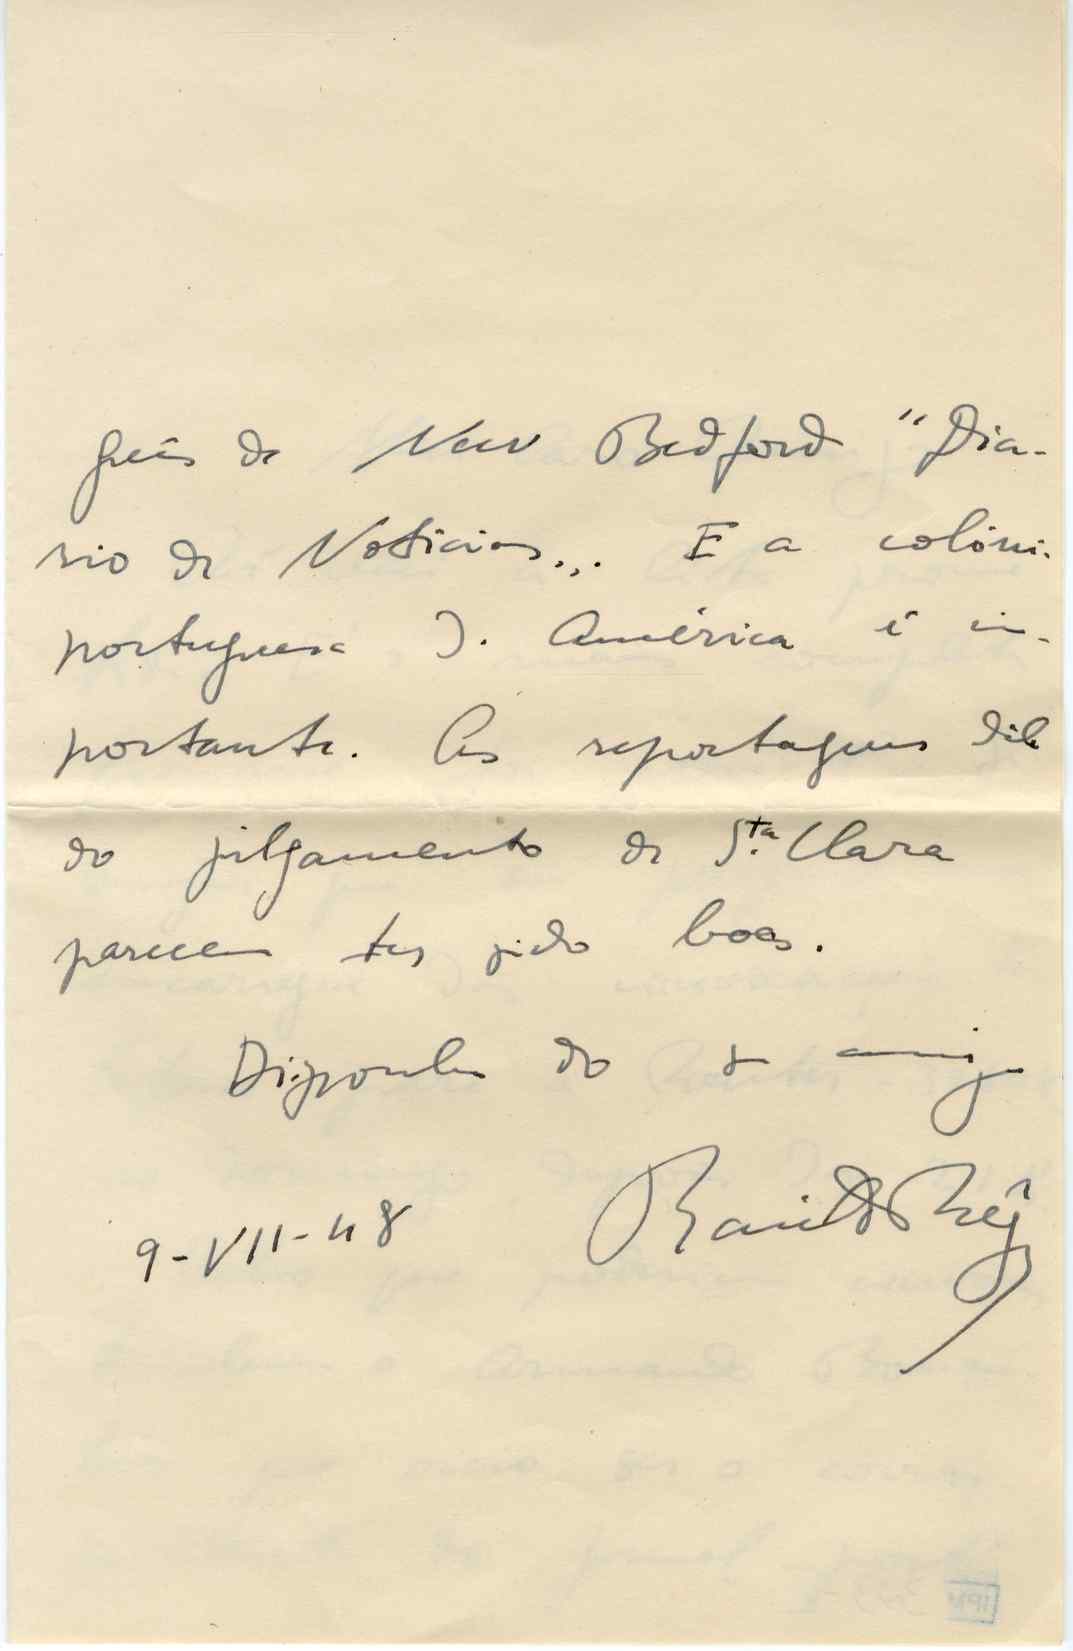 guês de New Bedford "Dia-
rio de Noticias... E a colóni.
portuguesa d. América é im-
portante. As reportagens dele
do julgamento de Sta. Clara
parecem ter sido boas.
Disponha do amigo
Raul Rêgo
9-VII-48